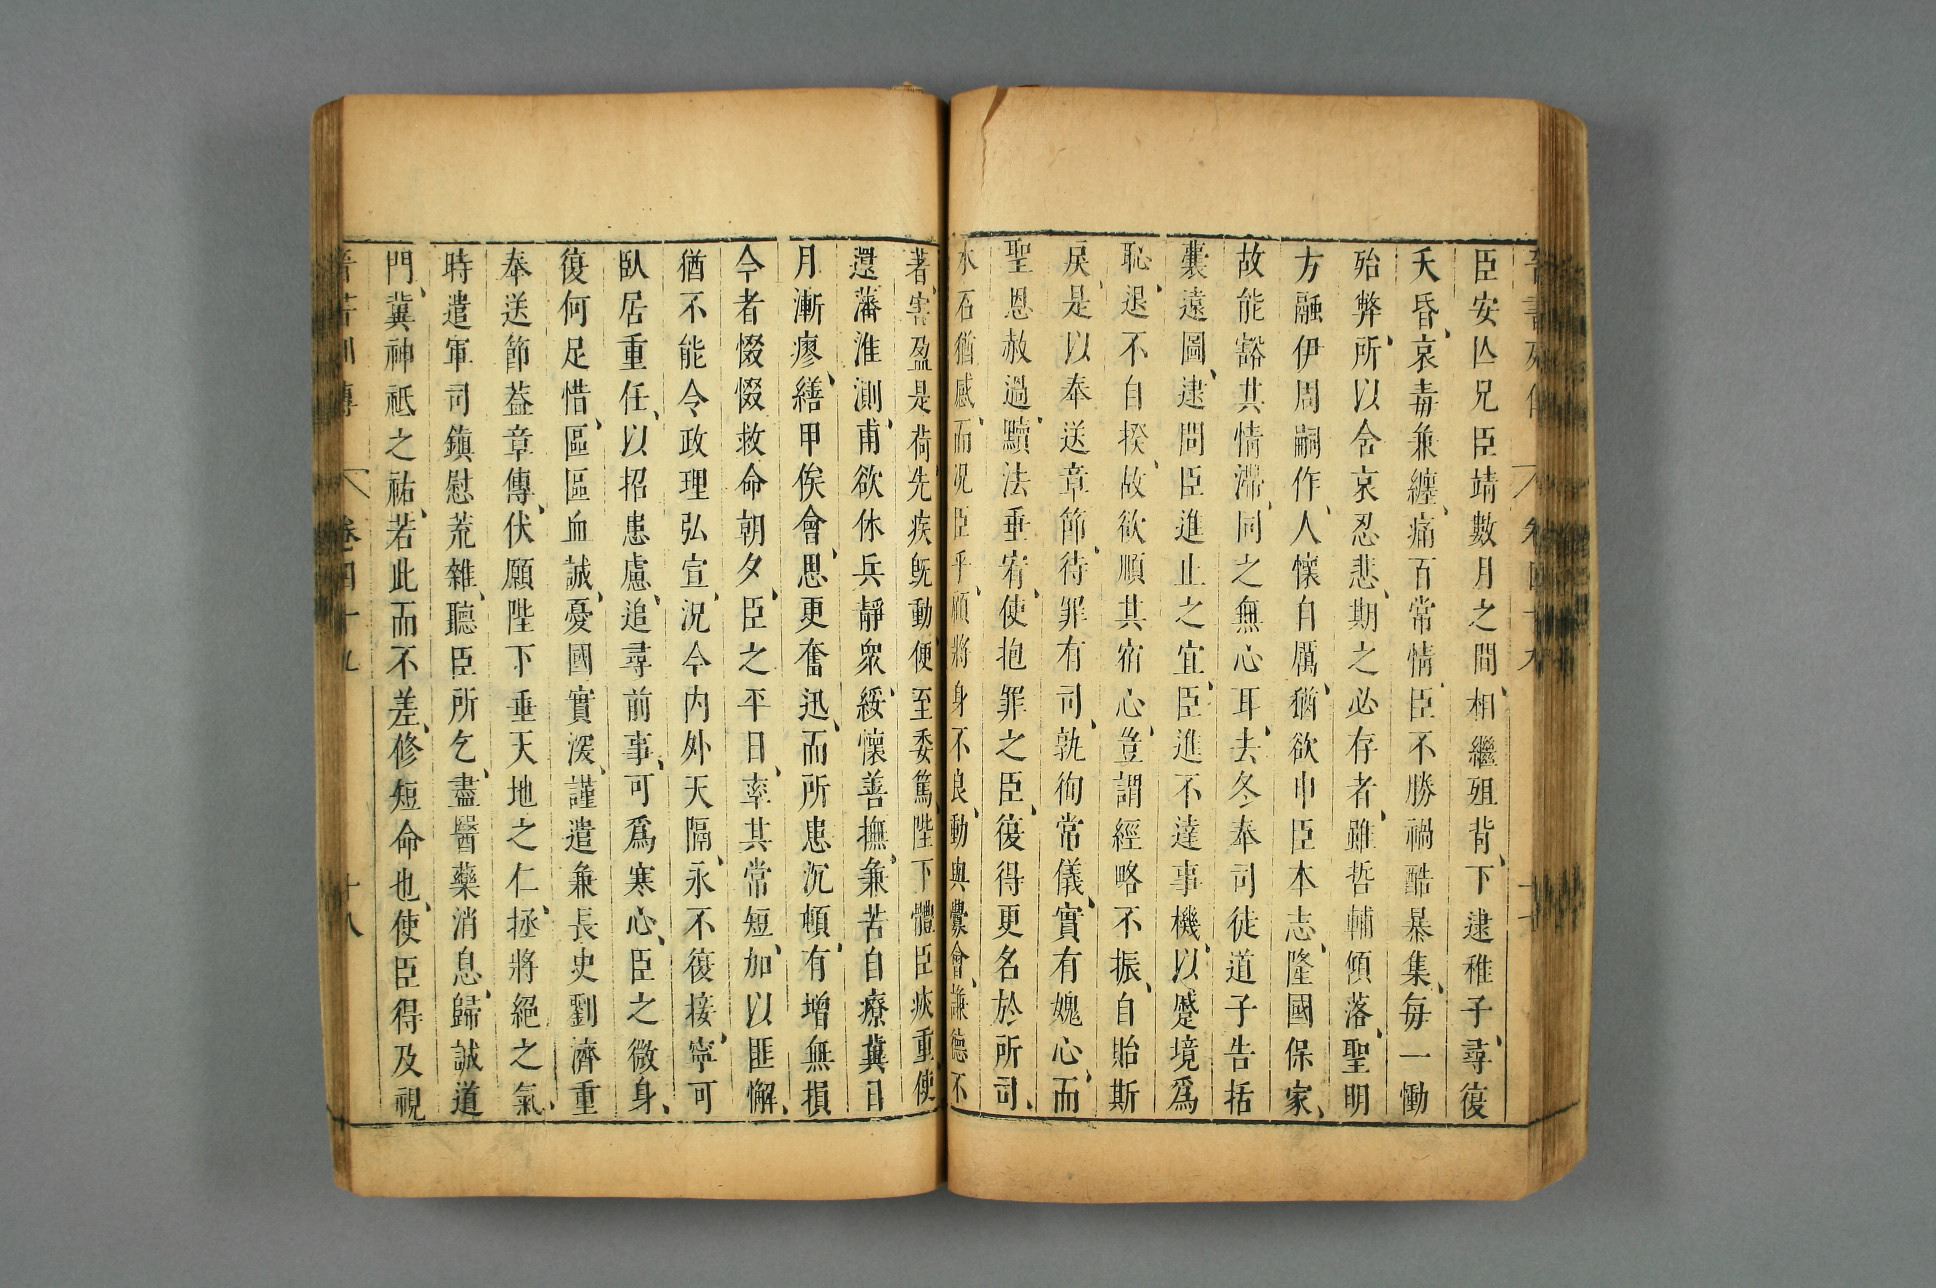 臣安亾兄臣靖數月之間、相繼殂背、下逮稚子、尋復
夭昏、哀毒兼纏、痛百常情、臣不勝禍酷暴集、每一慟
殆弊、所以含哀忍悲、期之必存者、雖哲輔傾落、聖明
方融、伊周嗣作、人懷自厲、猶欲申臣本志、隆國保家、
故能豁其情滯、同之無心耳、去冬奉司徒道子告括
囊遠圖、逮問臣進止之宜、臣進不達事機、以蹙境爲
恥、退不自揆、故欲順其宿心、豈謂經略不振、自貽斯
戾、是以奉送章節、待罪有司、執徇常儀、實有媿心、而
聖恩赦過黷法垂宥、使抱罪之臣、復得更名於所司、
木石猶感、而況臣乎、顧將身不良、動與釁會、謙德不
著、害盈是荷、先疾旣動、便至委篤、陛下體臣疢重、使
還藩淮測、甫欲休兵靜衆、綏懷善撫、兼苦自療、冀日
月漸瘳、繕甲俟會、思更奮迅、而所患沉頓、有增無損
今者惙惙救命朝夕、臣之平日、率其常短、加以匪懈、
猶不能令政理弘宣、況今內外天隔、永不復接、寧可
臥居重任、以招患慮、追尋前事、可爲寒心、臣之微身、
復何足惜、區區血誠、憂國實深、謹遣兼長史劉濟重
奉送節葢章傳、伏願陛下垂天地之仁、拯將絕之氣、
時遣軍司鎮慰荒雜、聽臣所乞、盡醫藥消息、歸誠道
門、冀神祇之祐、若此而不差、修短命也、使臣得及視
晉書列傳 卷四十九 十八